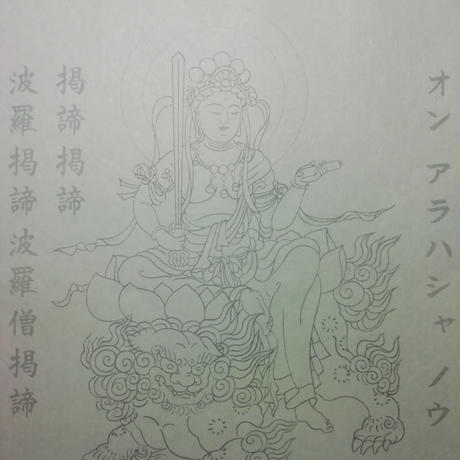 オン アラハシャ ノウ
揭諦揭諦
波羅揭諦波羅僧揭諦